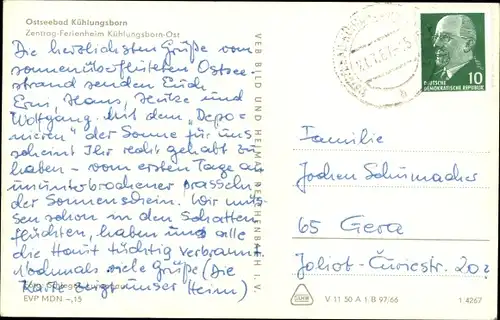 Ostseebad Kühlungsborn
Zentrag-Ferienheim Kühlungsborn-Ost
Die herzlichsten Grüße vom
sonnenüberfluteten Ostsee-
strand senden Euch
Erni, Hans, Heike und
Wolfgang. Mit dem "Depo=
nieren" der Sonne für uns
scheint Ihr recht gehabt zu
haben - vom ersten Tage an
ununterbrochener prasseln-
der Sonnenschein. Wir müs-
sen schon in den Schatten
flüchten, haben uns alle
die Haut tüchtig verbrannt.
Nochmals viele Grüße (Die
Karte zeigt unser Heim)
EVP MDN -,15
VEB BILD UND HEIMAT REICHENBACH I. V.
DEUTSCHE
DEMOKRATISCHE REPUBLIK
10
Familie
Jochen Schumacher
65 Gera
Joliot-Curiestr. 20
V 11 50 A 1 B 97/66
1 4267